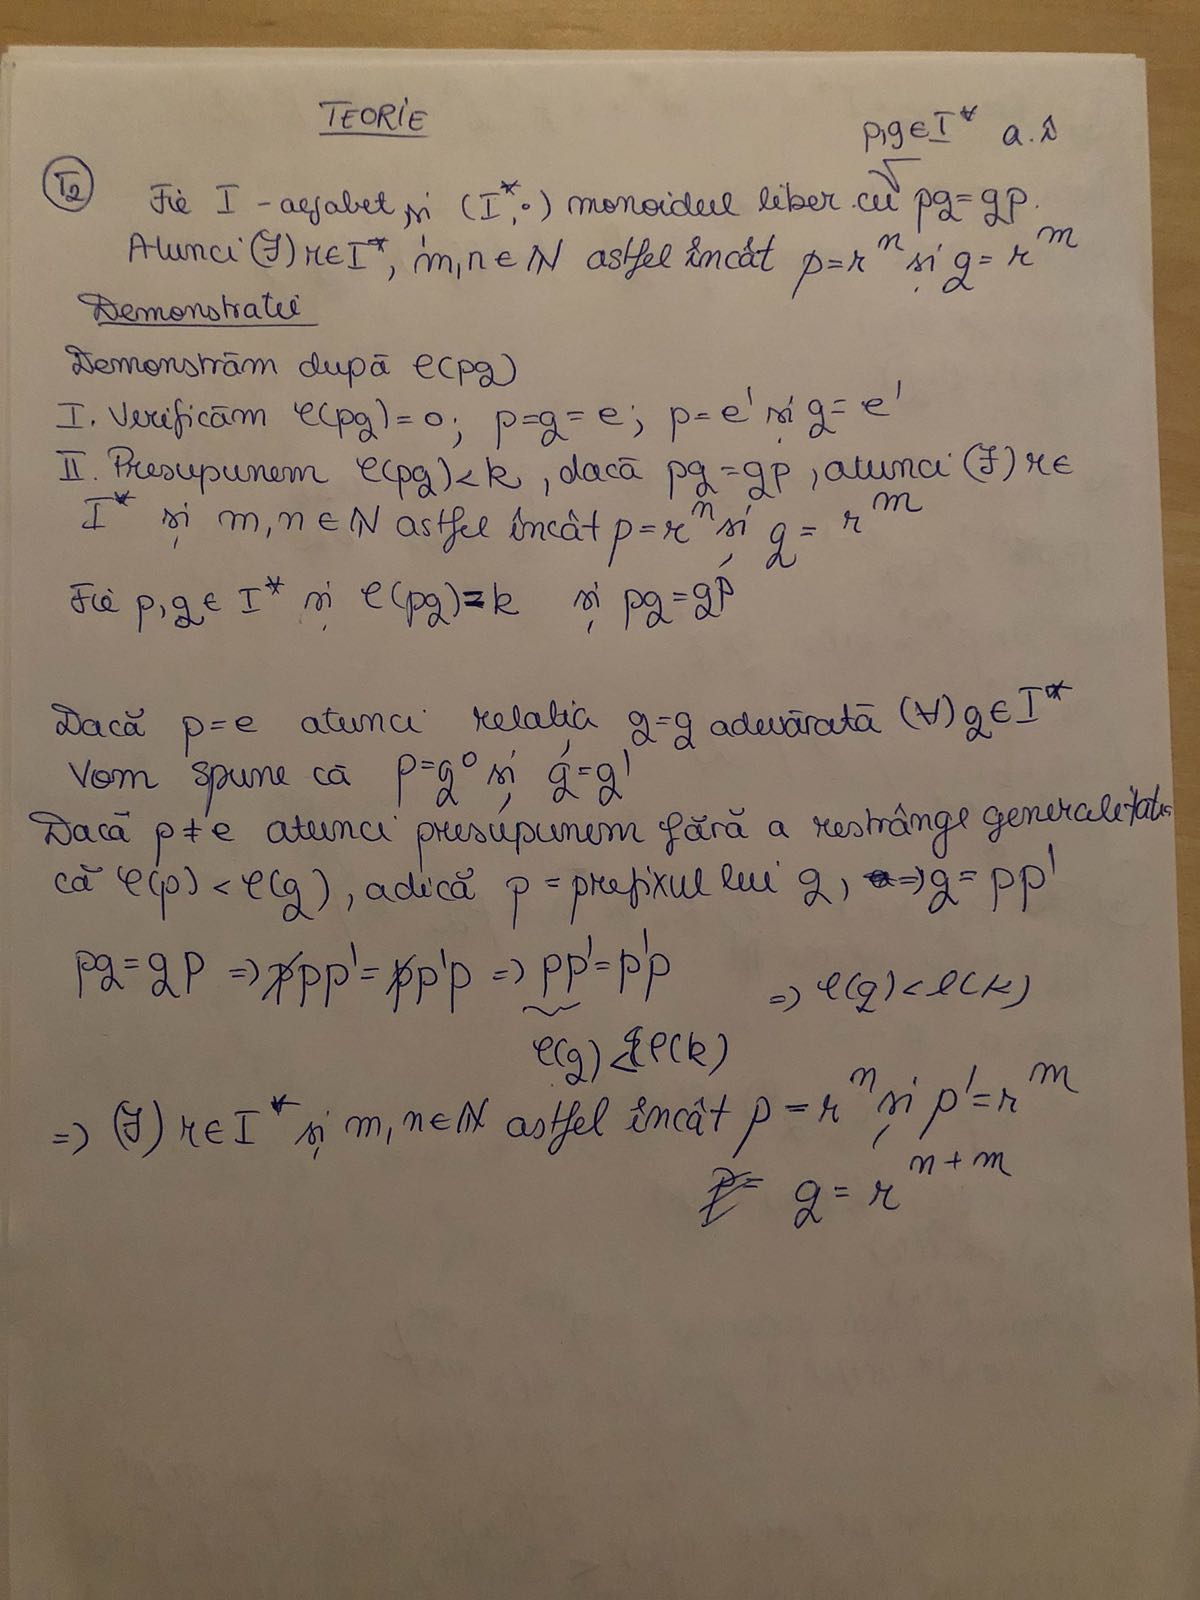 TEORIE
p,q∈I* a.î
T2 Fie I - alfabet și (I*,·) monoidul liber cu pq=qp.
Atunci (∃) r∈I*, m,n∈ℕ astfel încât p=r^n și q=r^m
Demonstratie
Demonstrăm după l(pq)
I. Verificăm l(pq)=0; p=q=e; p=e^1 și q=e^1
II. Presupunem l(pq)<k, dacă pq=qp, atunci (∃) r∈
I* și m,n∈ℕ astfel încât p=r^n și q=r^m
Fie p,q∈I* și l(pq)=k și pq=qp
Dacă p=e atunci relatia q=q adevărată (∀) q∈I*
Vom spune că p=q^0 și q=q^1
Dacă p≠e atunci presupunem fără a restrânge generalitatea
că l(p)<l(q), adică p=prefixul lui q, =>q=pp'
pq=qp => ppp'=pp'p => pp'=p'p => l(q)<l(k)
l(q)<l(k)
=> (∃) r∈I* și m,n∈ℕ astfel încât p=r^n și p'=r^m
q=r^{n+m}